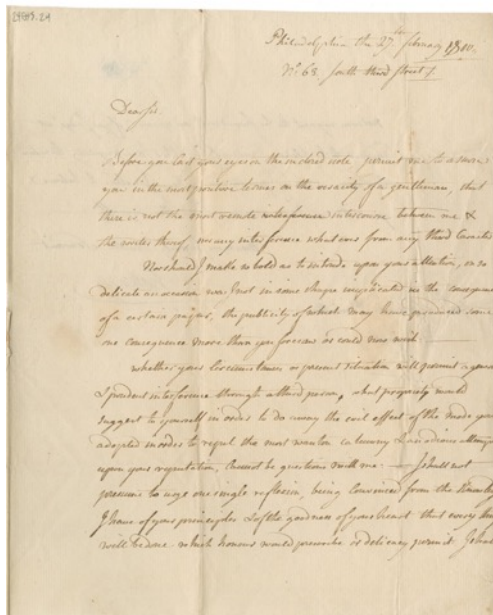 Philadelphia the 27th february 1810.
No. 68. South third Street.
Dear Sir.
Before you cast your eyes on the inclosed note permit me to assure
you in the most positive terms on the veracity of a gentleman, that
there is not the most remote intercourse between me &
the writer thereof, nor any interference whatever from any third
Nor should I make so bold as to intrude upon your attention, on so
delicate an occasion was I not in some shape implicated in the consequence
of a certain paper, the publicity of which may have produced some
one consequence more than you foresaw or could now wish.
whether your Circumstances or present Situation will permit a
& prudent interference through a third person, what propriety would
suggest to yourself in order to do away the evil effect of the mode you
adopted in order to repel the most wanton calumny & insidious
upon your reputation, Cannot be questions with me: I shall not
presume to urge one single reflexion, being Convinced from the
I have of your principles & of the goodness of your heart that every
will be done which honour would prescribe or delicacy permit.